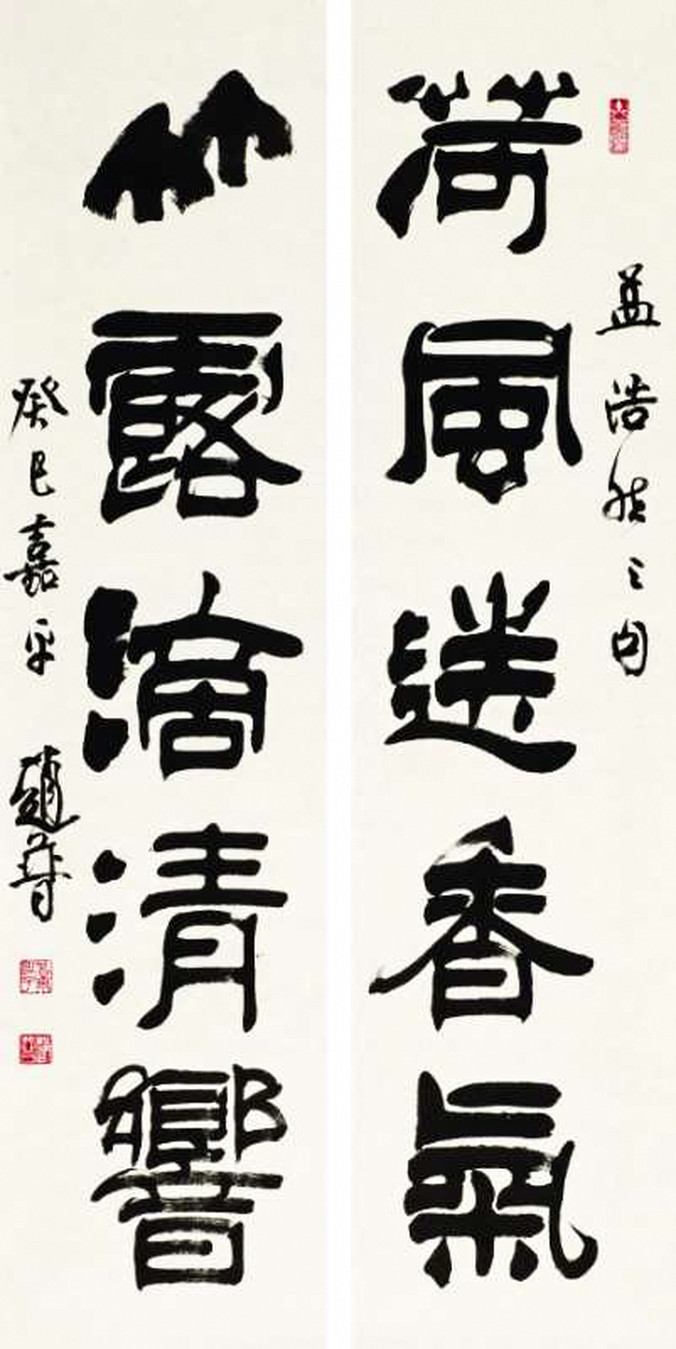 孟浩然之句
荷風送香氣
竹露滴清響
癸巳嘉平 趙普